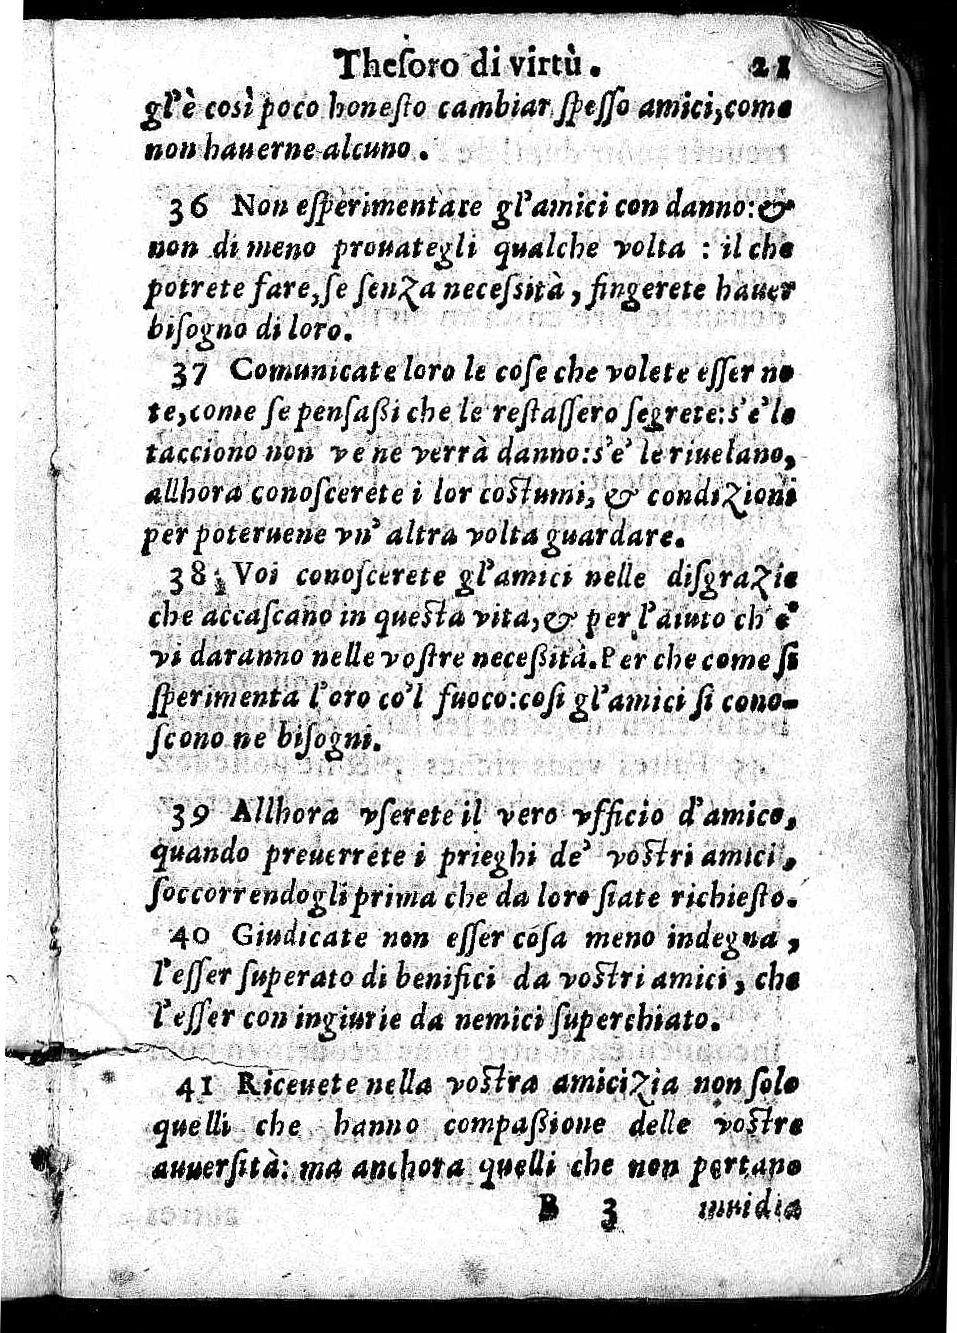 Theſoro di virtù. 21
gl'è così poco honeſto cambiar ſpeſſo amici, come
non hauerne alcuno.
36 Non eſperimentare gl'amici con danno: &
non di meno prouategli qualche volta : il che
potrete fare, ſe ſenza neceſsità, fingerete hauer
biſogno di loro.
37 Comunicate loro le coſe che volete eſſer no
te, come ſe penſaßi che le reſtaſſero ſegrete: s'e' le
tacciono non ve ne verrà danno: s'e' le riuelano,
allhora conoſcerete i lor coſtumi, & condizioni
per poteruene vn' altra volta guardare.
38 Voi conoſcerete gl'amici nelle diſgrazie
che accaſcano in queſta vita, & per l'aiuto ch' e'
vi daranno nelle voſtre neceßità. Per che come ſi
ſperimenta l'oro co'l fuoco: coſi gl'amici ſi cono-
ſcono ne biſogni.
39 Allhora vſerete il vero vfficio d'amico,
quando preuerrete i prieghi de' voſtri amici,
ſoccorrendogli prima che da loro ſiate richieſto.
40 Giudicate non eſſer coſa meno indegna,
l'eſſer ſuperato di benifici da voſtri amici, che
l'eſſer con ingiurie da nemici ſuperchiato.
41 Riceuete nella voſtra amicizia non ſolo
quelli che hanno compaßione delle voſtre
auuerſità: ma anchora quelli che non portano
B 3 inuidia